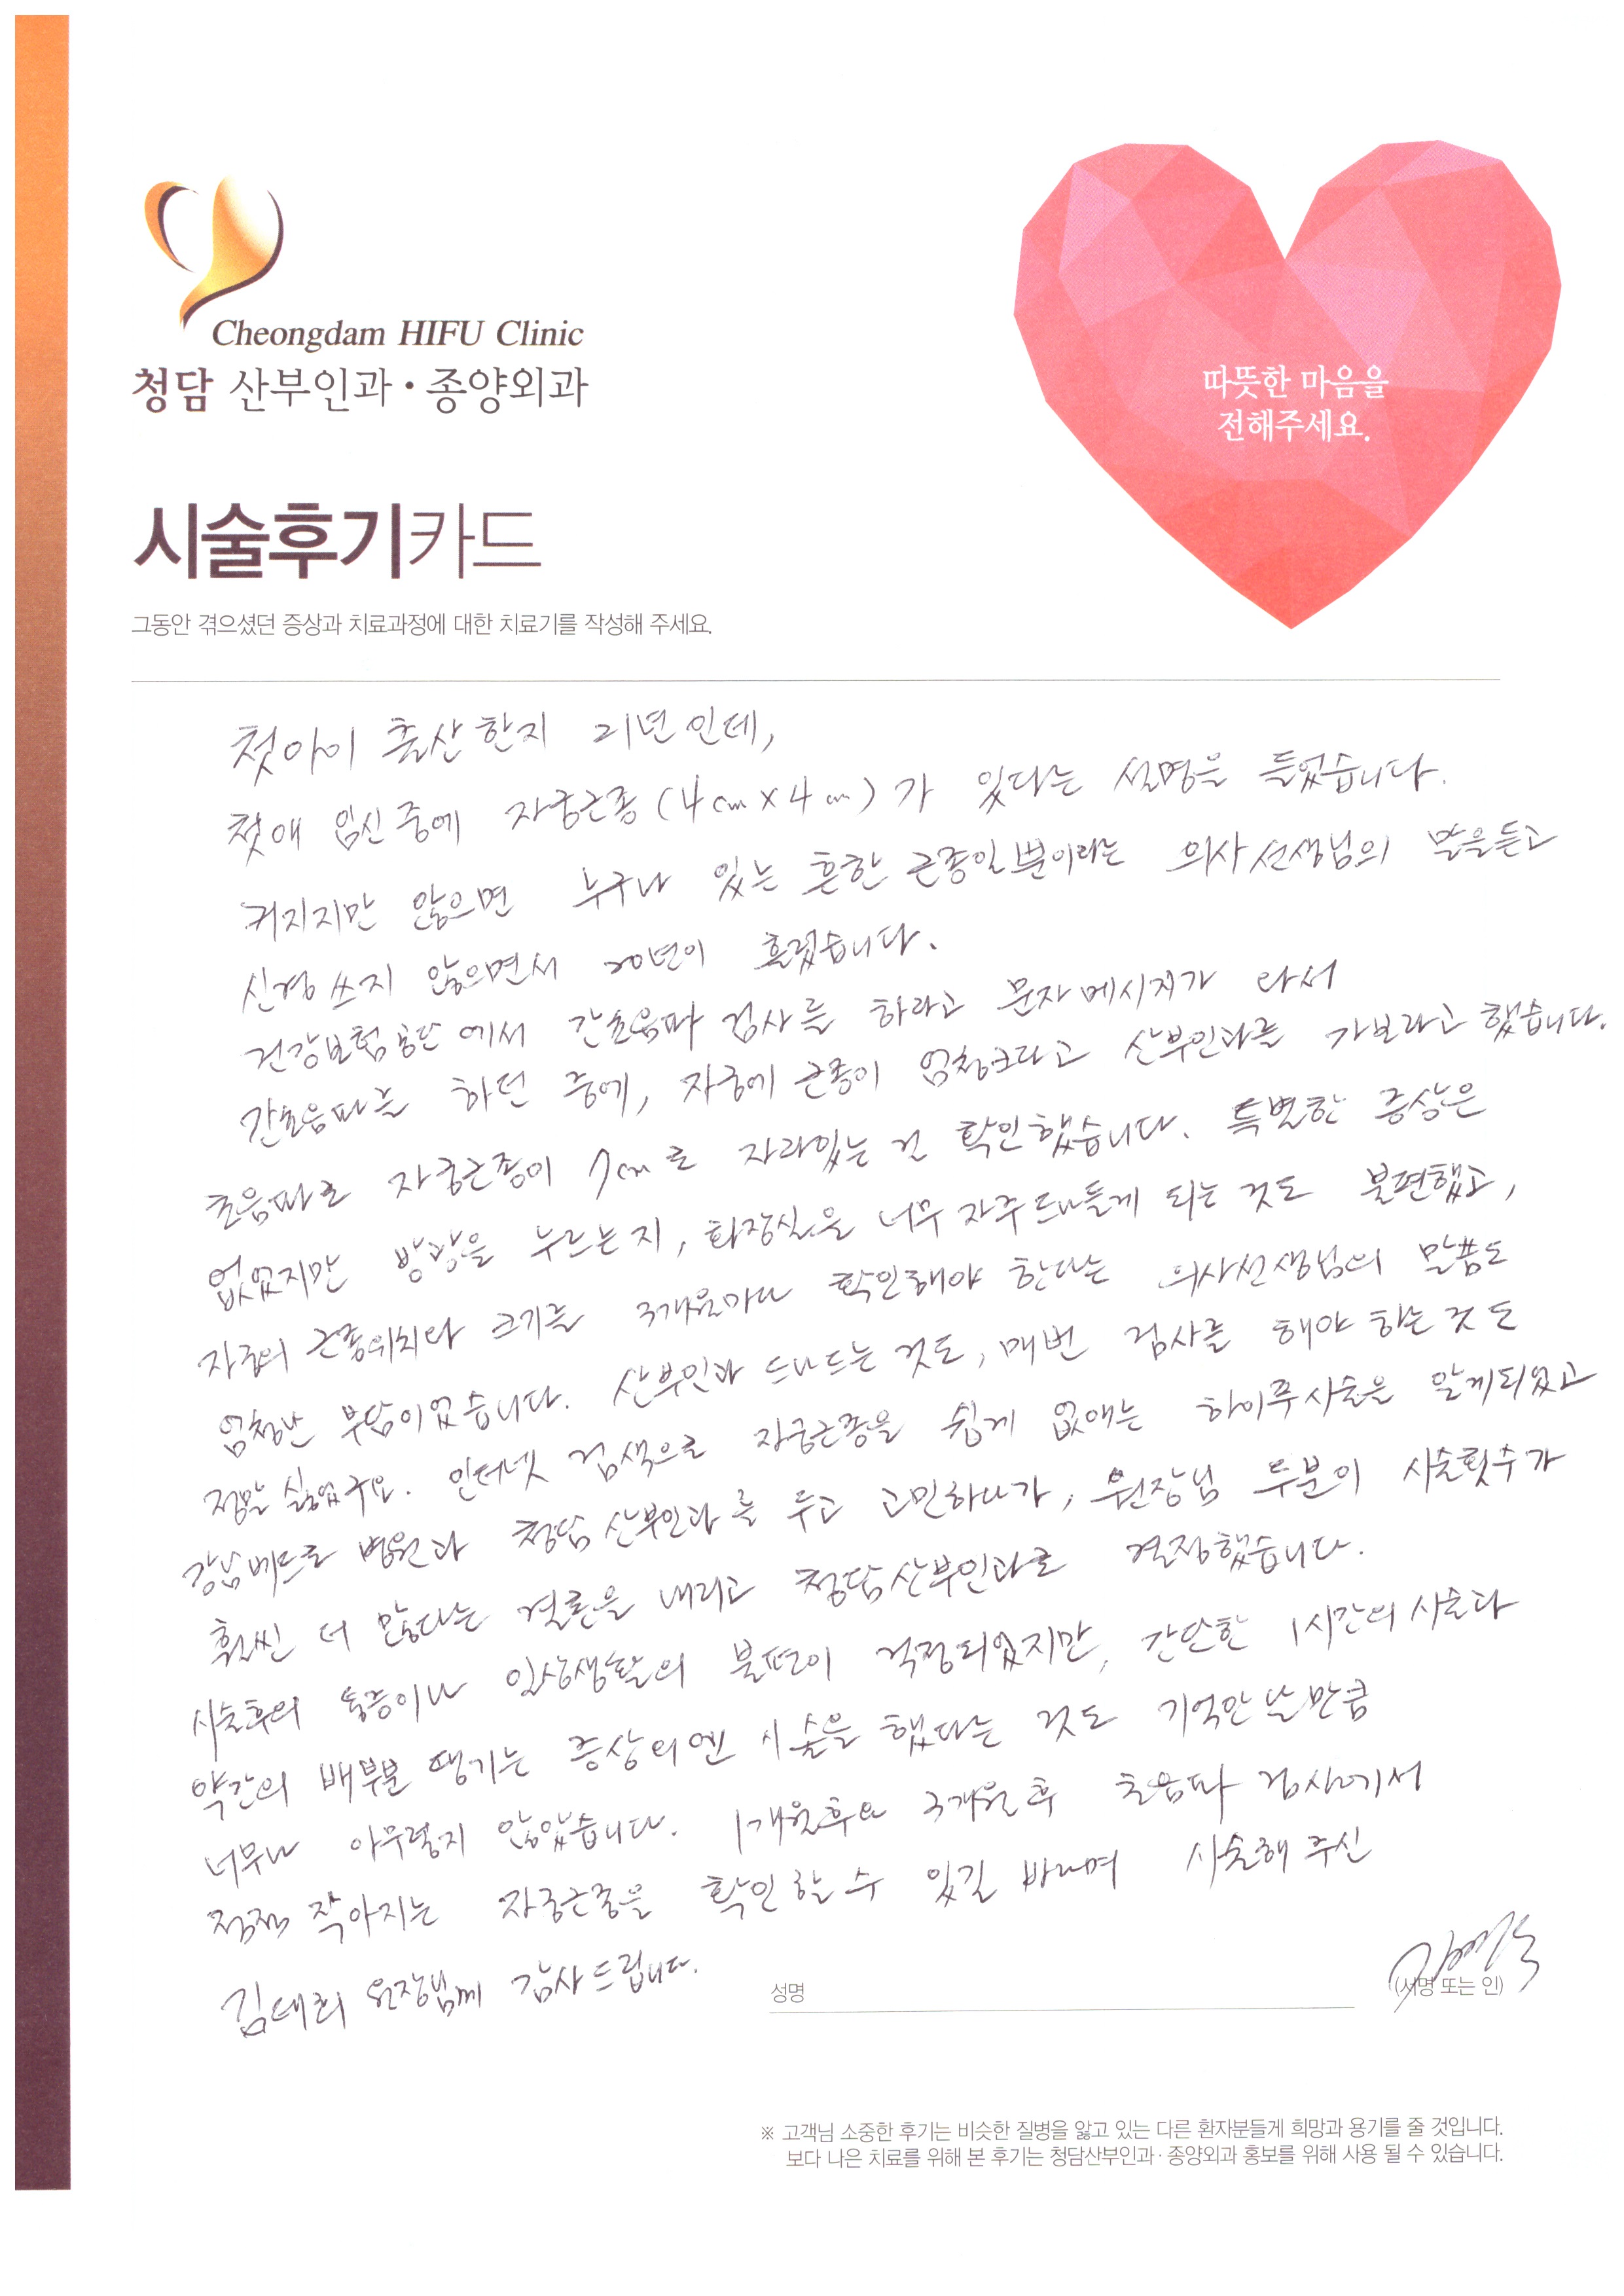 Cheongdam HIFU Clinic
청담 산부인과·종양외과
따뜻한 마음을
전해주세요.
시술후기카드
그동안 겪으셨던 증상과 치료과정에 대한 치료기를 작성해 주세요.
첫아이 출산한지 21년인데,
첫애 임신중에 자궁근종(4cm×4cm)가 있다는 설명을 들었습니다.
커지지만 않으면 누구나 있는 흔한 근종일뿐이라는 의사선생님의 말을듣고
신경쓰지 않으면서 20년이 흘렀습니다.
건강보험공단에서 간초음파 검사를 하라고 문자메시지가 와서
간초음파를 하던 중에, 자궁에 근종이 엄청크다고 산부인과를 가보라고 했습니다.
초음파로 자궁근종이 7cm로 자라있는 걸 확인했습니다. 특별한 증상은
없었지만 방광을 누르는지, 화장실을 너무 자주 드나들게 되는 것도 불편했고,
자궁의 근종위치와 크기를 3개월마다 확인해야 한다는 의사선생님의 말씀도
엄청난 부담이었습니다. 산부인과 드나드는 것도, 매번 검사를 해야 하는 것도
정말 싫었구요. 인터넷 검색으로 자궁근종을 쉽게 없애는 하이푸시술을 알게되었고
강남베드로 병원과 청담산부인과를 두고 고민하다가, 원장님 두분의 시술횟수가
훨씬 더 많다는 결론을 내리고 청담산부인과로 결정했습니다.
시술후의 통증이나 일상생활의 불편이 걱정되었지만, 간단한 1시간의 시술과
약간의 배부분 땡기는 증상외엔 시술을 했다는 것도 기억안날만큼
너무나 아무렇지 않았습니다. 1개월후와 3개월후 초음파 검사에서
점점 작아지는 자궁근종을 확인할 수 있길 바라며 시술해 주신
김태희 원장님께 감사드립니다.
성명 (서명 또는 인)
※ 고객님 소중한 후기는 비슷한 질병을 앓고 있는 다른 환자분들게 희망과 용기를 줄 것입니다.
보다 나은 치료를 위해 본 후기는 청담산부인과·종양외과 홍보를 위해 사용 될 수 있습니다.